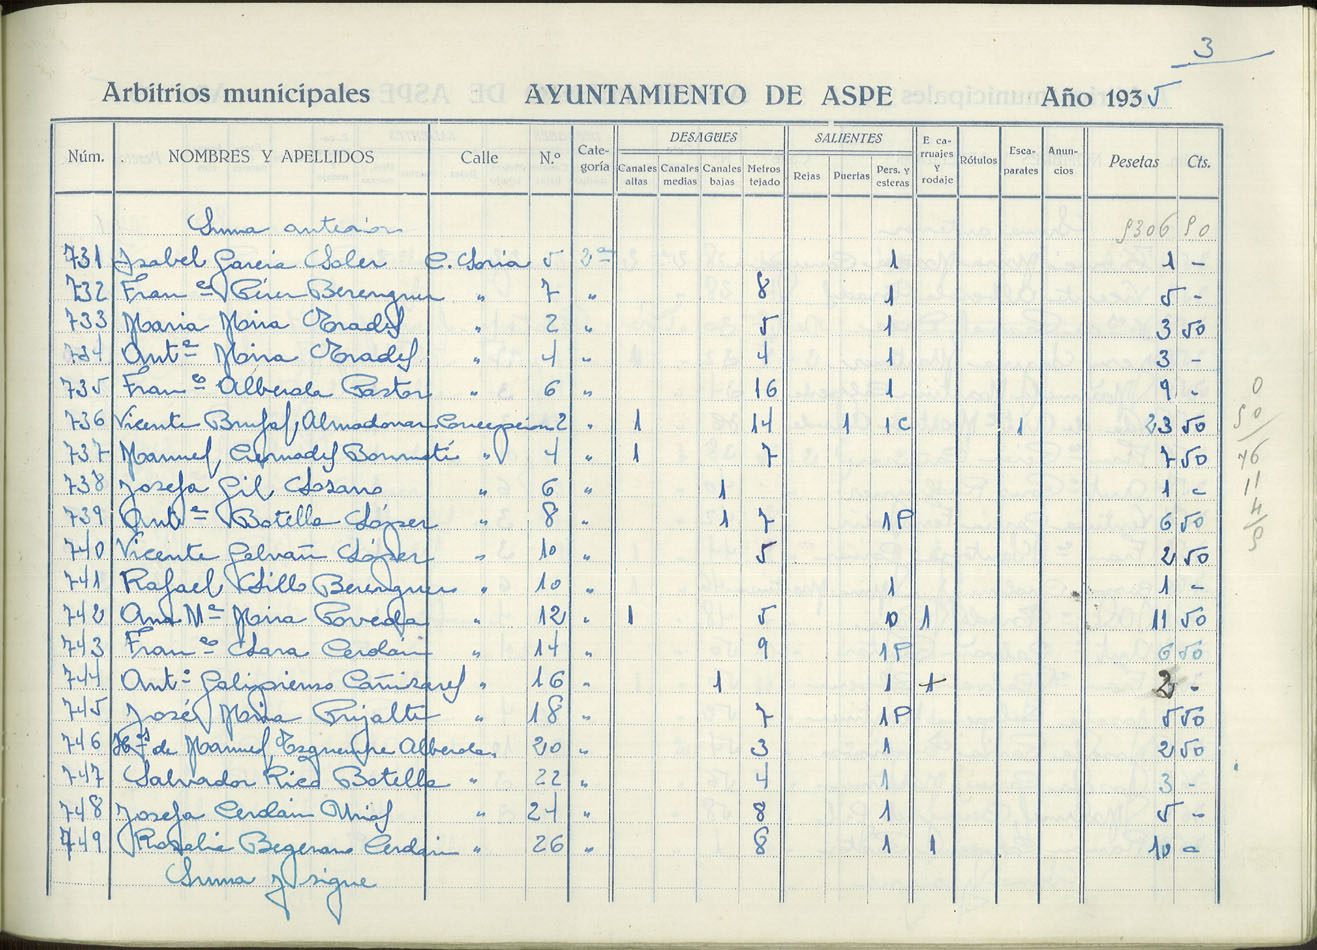 3
Arbitrios municipales AYUNTAMIENTO DE ASPE Año 1935
Núm. NOMBRES Y APELLIDOS Calle N.º Cate-goría DESAGÜES Canales altas Canales medias Canales bajas Metros tejado SALIENTES Rejas Puertas Pers. y esteras E. ca-rruajes y rodaje Rótulos Esca-parates Anun-cios Pesetas Cts.
Suma anterior 9306 90
731 Isabel García Soler C. Soria 5 2ª 1 1 -
732 Fran.ca Perez Berenguer " 7 " 8 1 5 -
733 Maria Mira Pradel " 2 " 5 1 3 50
734 Antª Mira Pradel " 4 " 4 1 3 -
735 Fran.co Alberola Pastor " 6 " 16 1 9 -
736 Vicente Almodovar Concepción 2 " 1 14 1 1C 1 23 50
737 Manuel Cremades Bonmatí " 4 " 1 7 7 50
738 Josefa Gil Lozano " 6 " 1 1 -
739 Antª Botella López " 8 " 1 7 1P 6 50
740 Vicente Galvañ López " 10 " 5 2 50
741 Rafael Sillo Berenguer " 10 " 1 1 -
742 Ana Mª Mira Poveda " 12 " 1 5 1 11 50
743 Fran.co Lara Cerdán " 14 " 9 1P 6 50
744 Antº Galipienso Cañizares " 16 " 1 1 2 -
745 José Mira Pujalte " 18 " 7 1P 5 50
746 H.os de Manuel Alberola " 20 " 3 1 2 50
747 Salvador Rico Botella " 22 " 4 1 3 -
748 Josefa Cerdán " 24 " 8 1 5 -
749 Rosalia Cerdán " 26 " 8 1 1 10 -
Suma y sigue
0
90
76
11
4
9